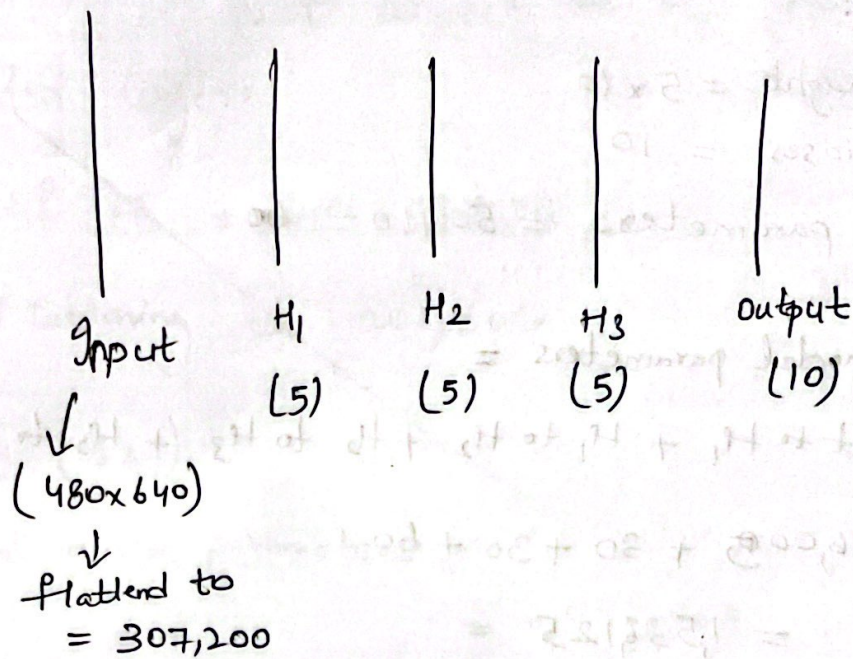 Input
H1
H2
H3
output
(5)
(5)
(5)
(10)
(480x640)
flattend to
= 307,200